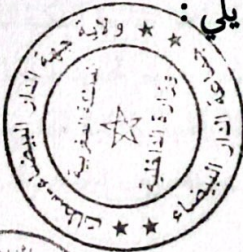 يلي :
ولاية جهة الدار البيضاء سطات
المملكة المغربية
وزارة الداخلية
الدار البيضاء